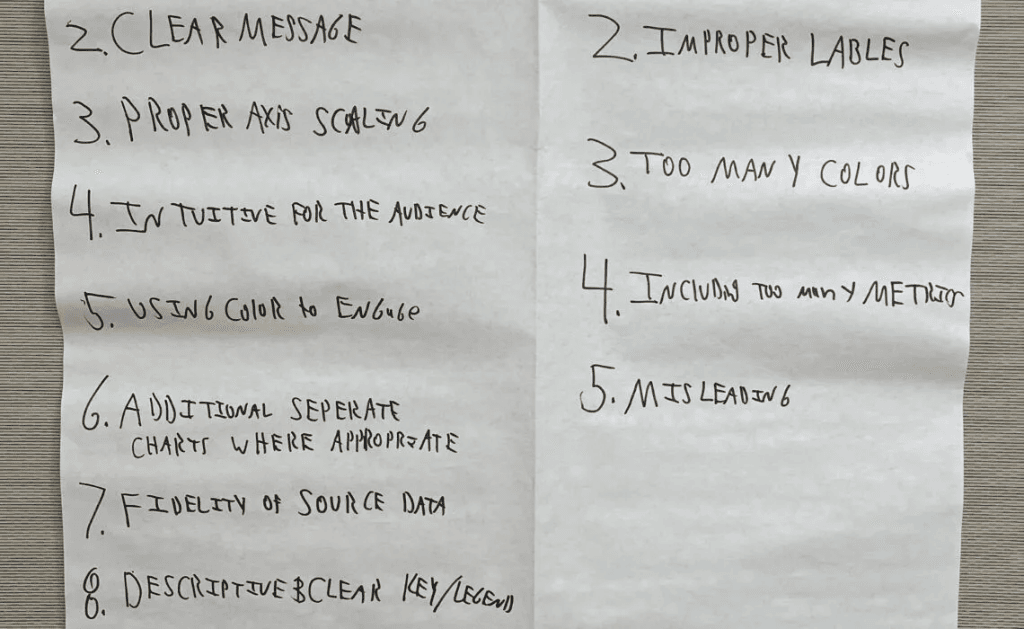 2. CLEAR MESSAGE
3. PROPER AXIS SCALING
4. INTUITIVE FOR THE AUDIENCE
5. USING COLOR to ENGAGE
6. ADDITIONAL SEPERATE
CHARTS WHERE APPROPRIATE
7. FIDELITY OF SOURCE DATA
8. DESCRIPTIVE & CLEAR KEY/LEGEND
2. IMPROPER LABLES
3. TOO MANY COLORS
4. INCLUDING TOO MANY METRICS
5. MISLEADING